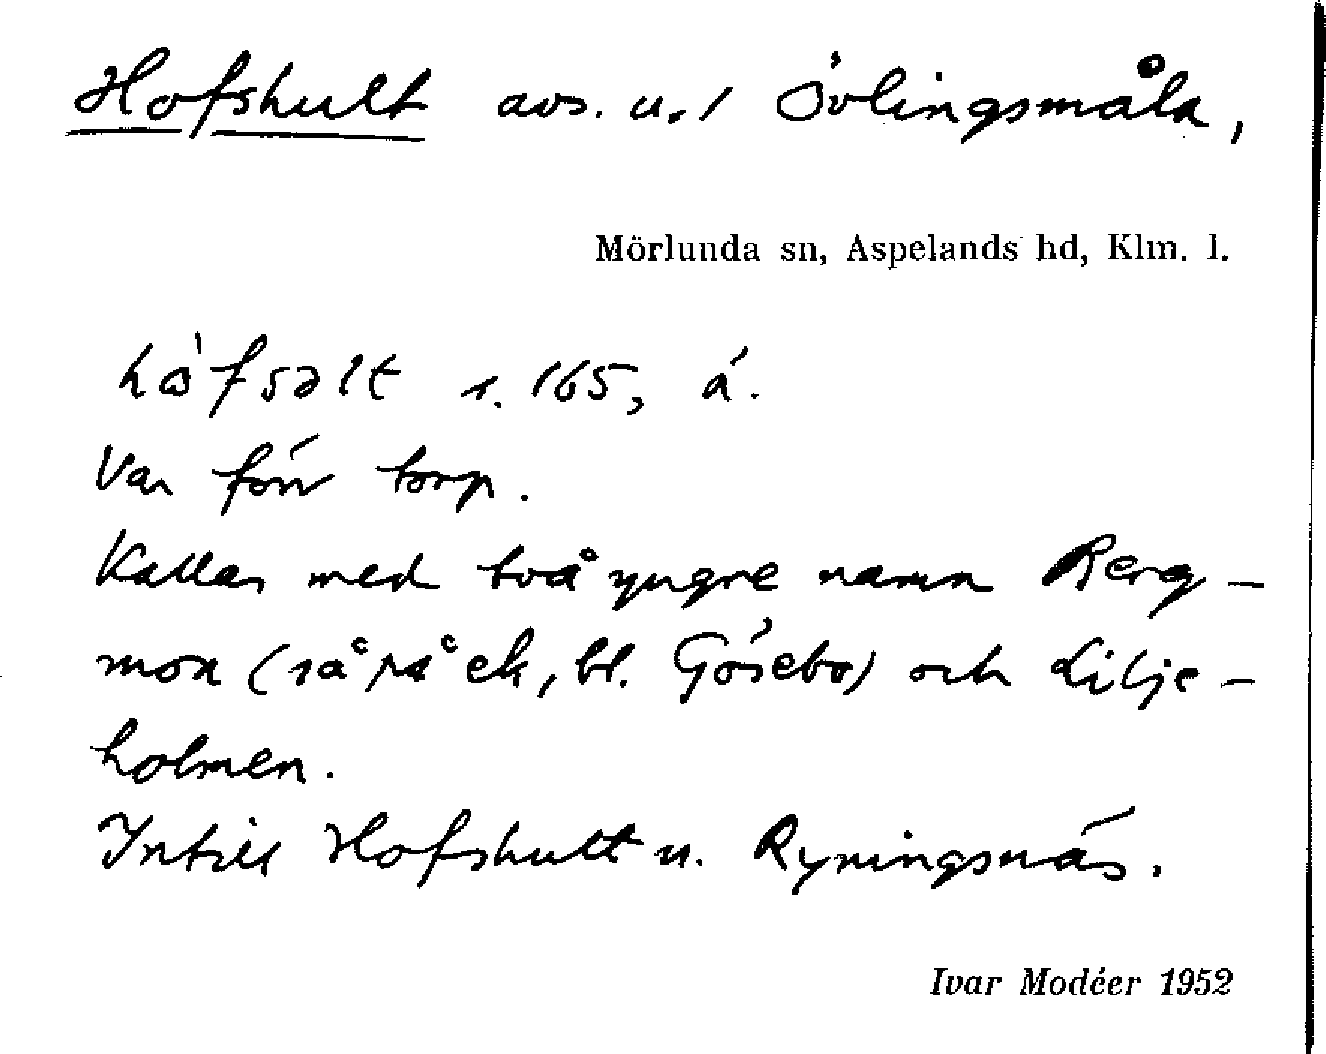 Hofshult avs. u. 1 Övlingsmåla,
Mörlunda sn, Aspelands hd, Klm. l.
s. 165, á.
Var förr torp.
Kallas med två yngre namn Berg-
mon (så på ek, bl. Gösebo) och Lilje-
holmen.
Intill Hofshult u. Ryningsnäs.
Ivar Modéer 1952